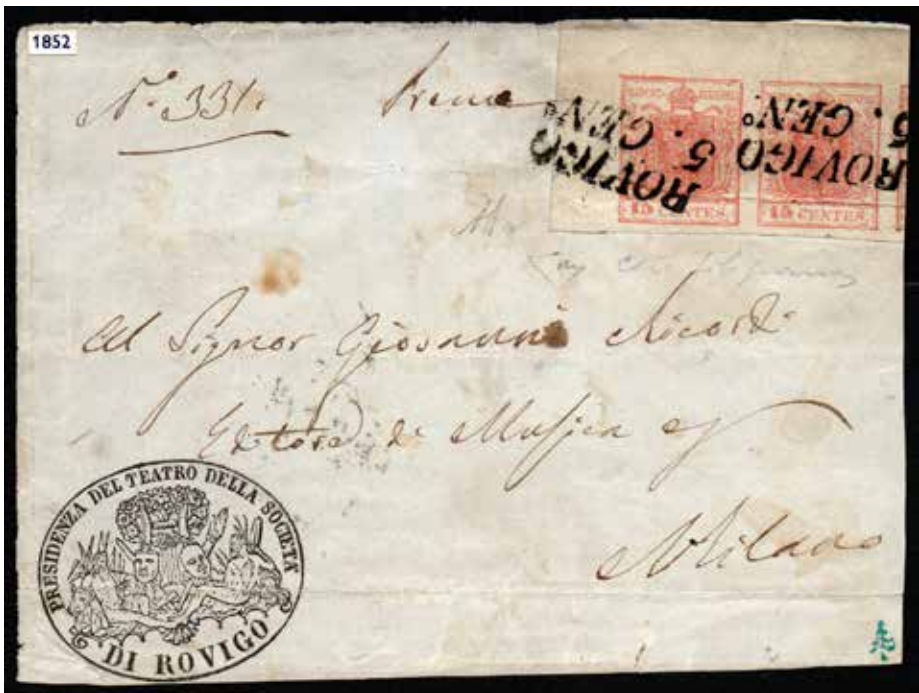 1852
N.º 331.
ROVIGO
5. GENº
ROVIGO
5. GENº
15 CENTES.
15 CENTES.
Al Signor Giovanni Ricordi
Editore di Musica
Milano
PRESIDENZA DEL TEATRO DELLA SOCIETÀ
DI ROVIGO